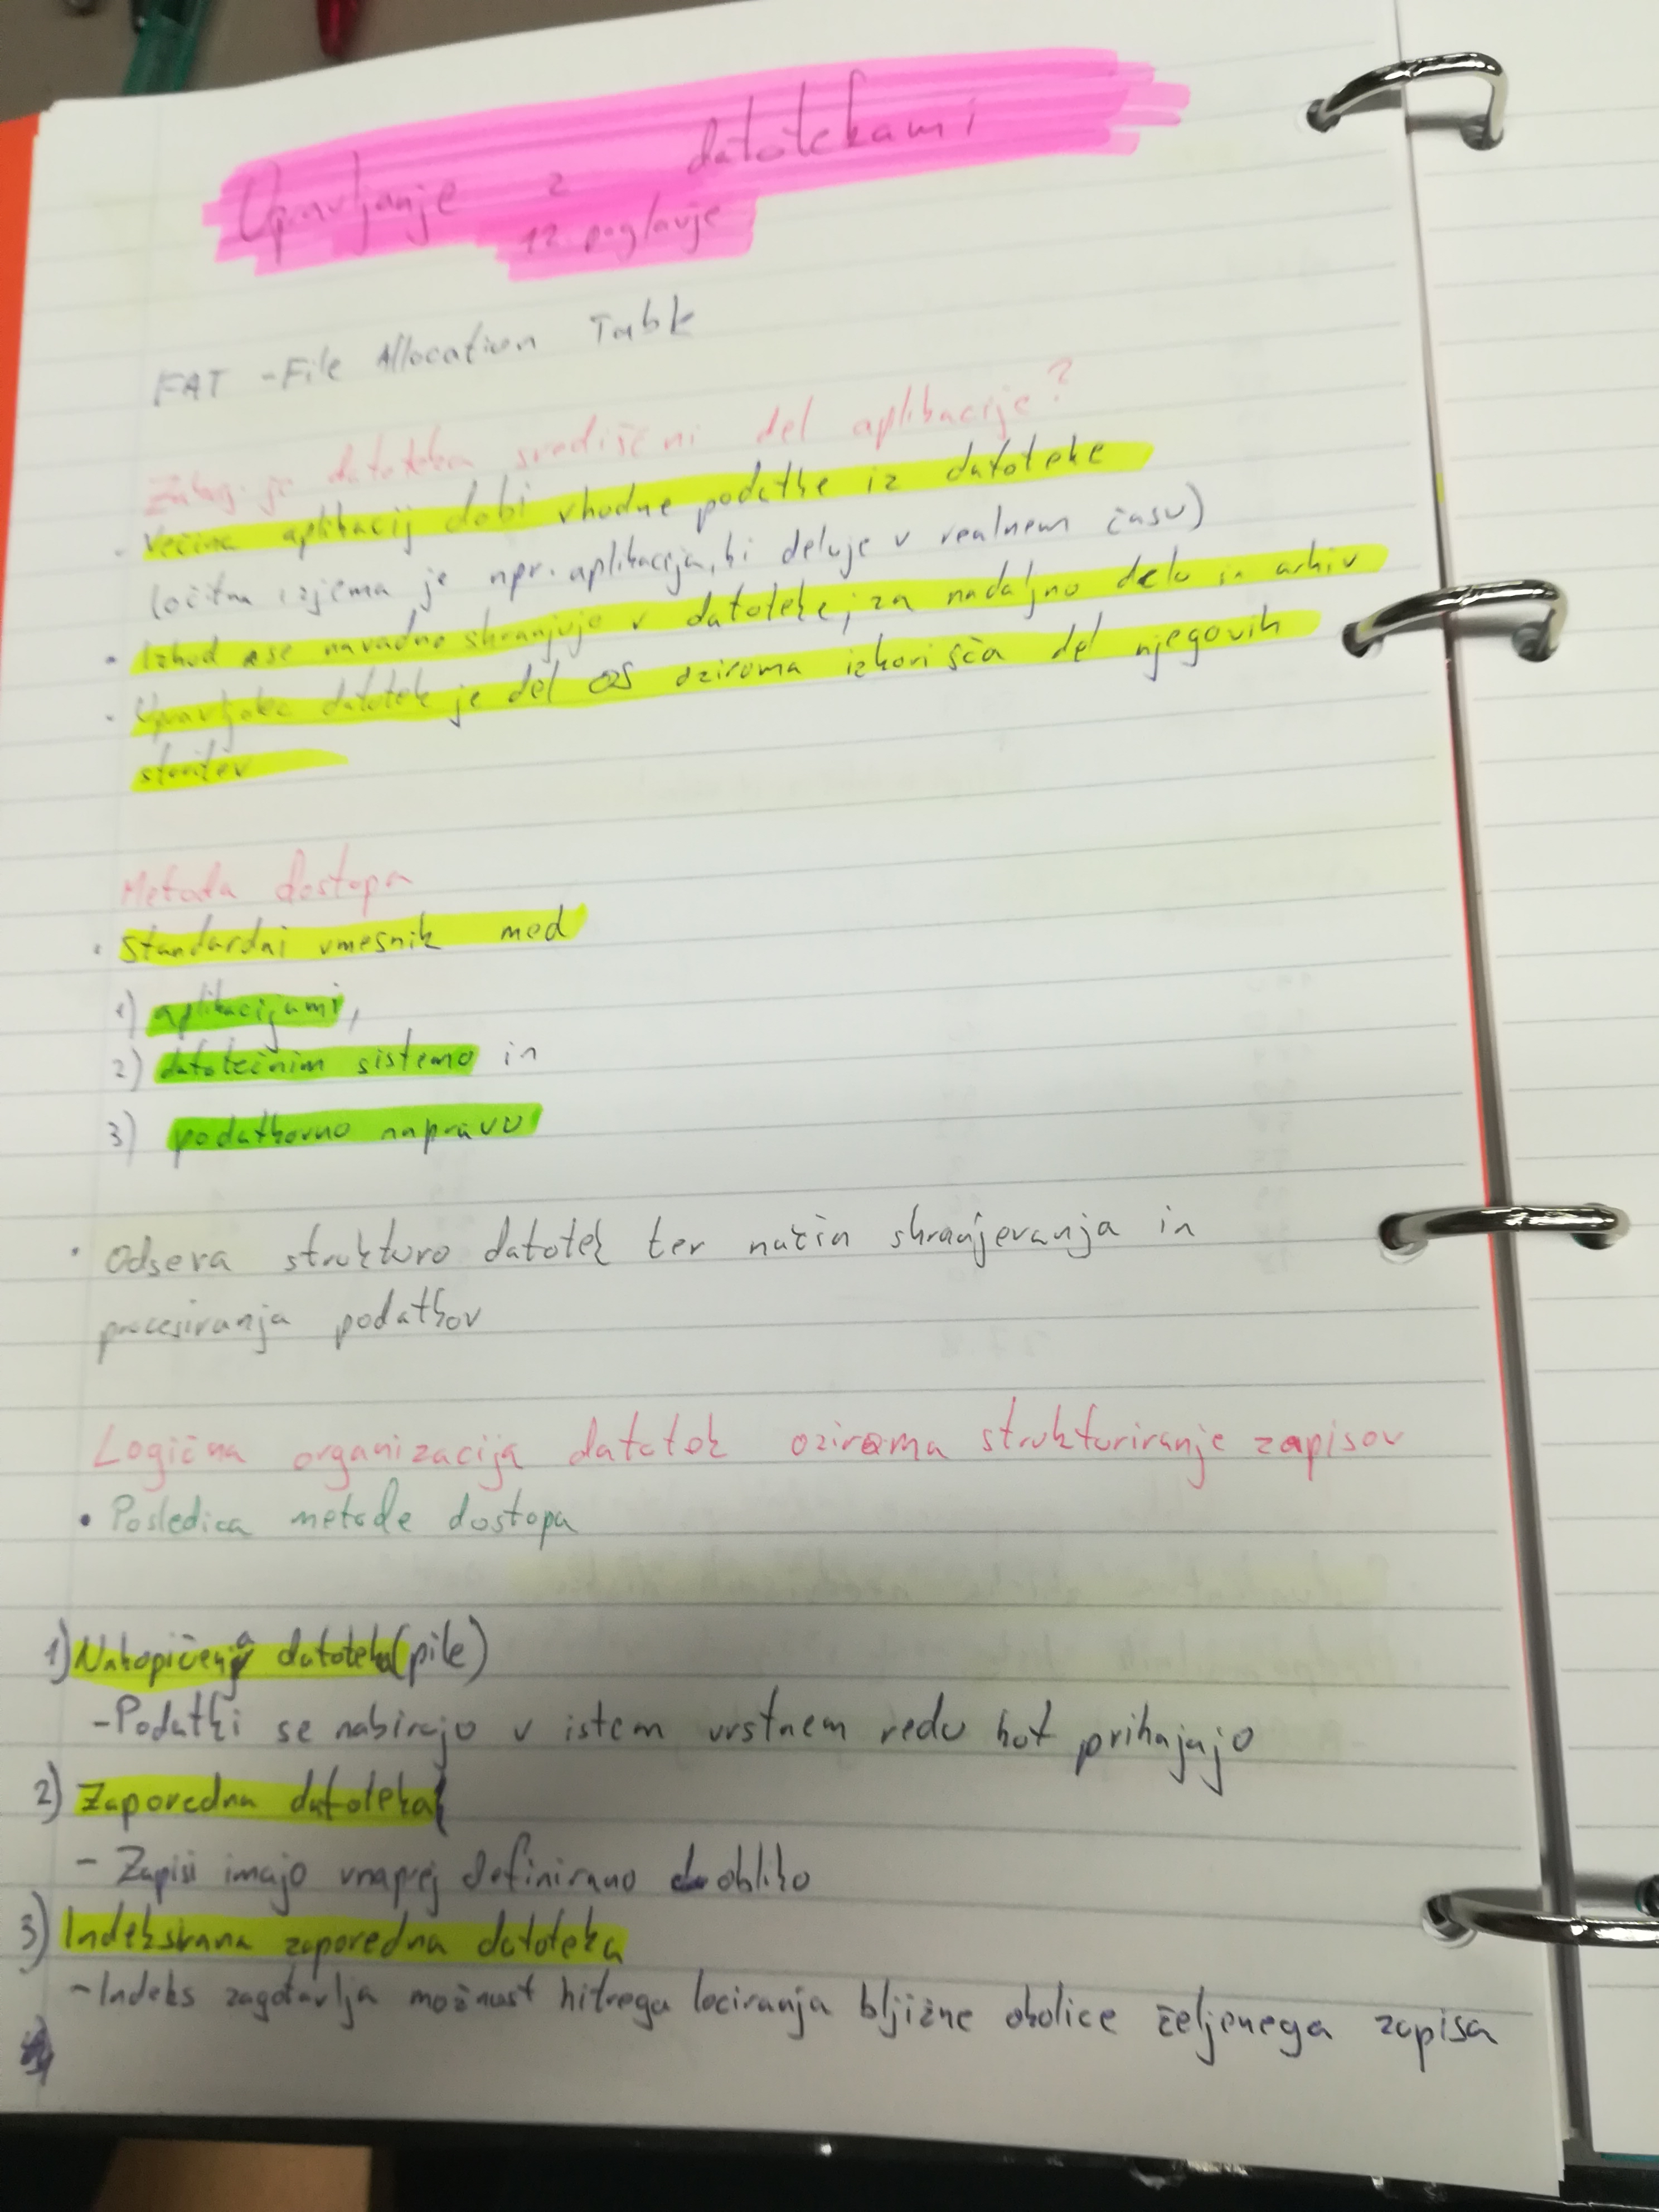 Upravljanje z datotekami
12. poglavje
FAT - File Allocation Table
Zakaj je datoteka središčni del aplikacije?
· Večina aplikacij dobi vhodne podatke iz datoteke
(očitna izjema je npr. aplikacija, ki deluje v realnem času)
· Izhod se navadno shranjuje v datoteke, za nadaljno delo in arhiv
· Upravljalec datotek je del OS oziroma izkorišča del njegovih
storitev
Metoda dostopa
· Standardni vmesnik med
1) aplikacijami,
2) datotečnim sistemo in
3) podatkovno napravo
· Odseva strukturo datotek ter način shranjevanja in
procesiranja podatkov
Logična organizacija datotek oziroma strukturiranje zapisov
• Posledica metode dostopa
1) Nakopičena datoteka (pile)
- Podatki se nabirajo v istem vrstnem redu kot prihajajo
2) Zaporedna datoteka
- Zapisi imajo vnaprej definirano obliko
3) Indeksirana zaporedna datoteka
- Indeks zagotavlja možnost hitrega lociranja bljižne okolice željenega zapisa